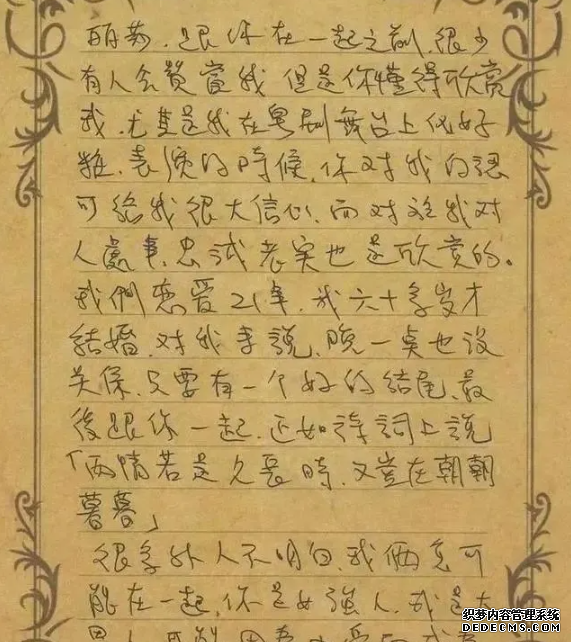 丽莎,跟你在一起之前,很少
有人会赞赏我,但是你懂得欣赏
我,尤其是我在粤剧舞台上
表演的時候,你对我的認
可給我很大信心,而对我对
人處事,忠誠老实也是欣赏的。
我們恋爱21年,我六十多岁才
結婚,对我来說,晚一点也没
关係,只要有一个好的结尾,最
後跟你一起,正如诗詞上說
「两情若是久長時,又豈在朝朝
暮暮」
很多外人不明白,我俩怎可
能在一起,你是女強人,我是大
男人
织梦内容管理系统
DEDECMS.COM